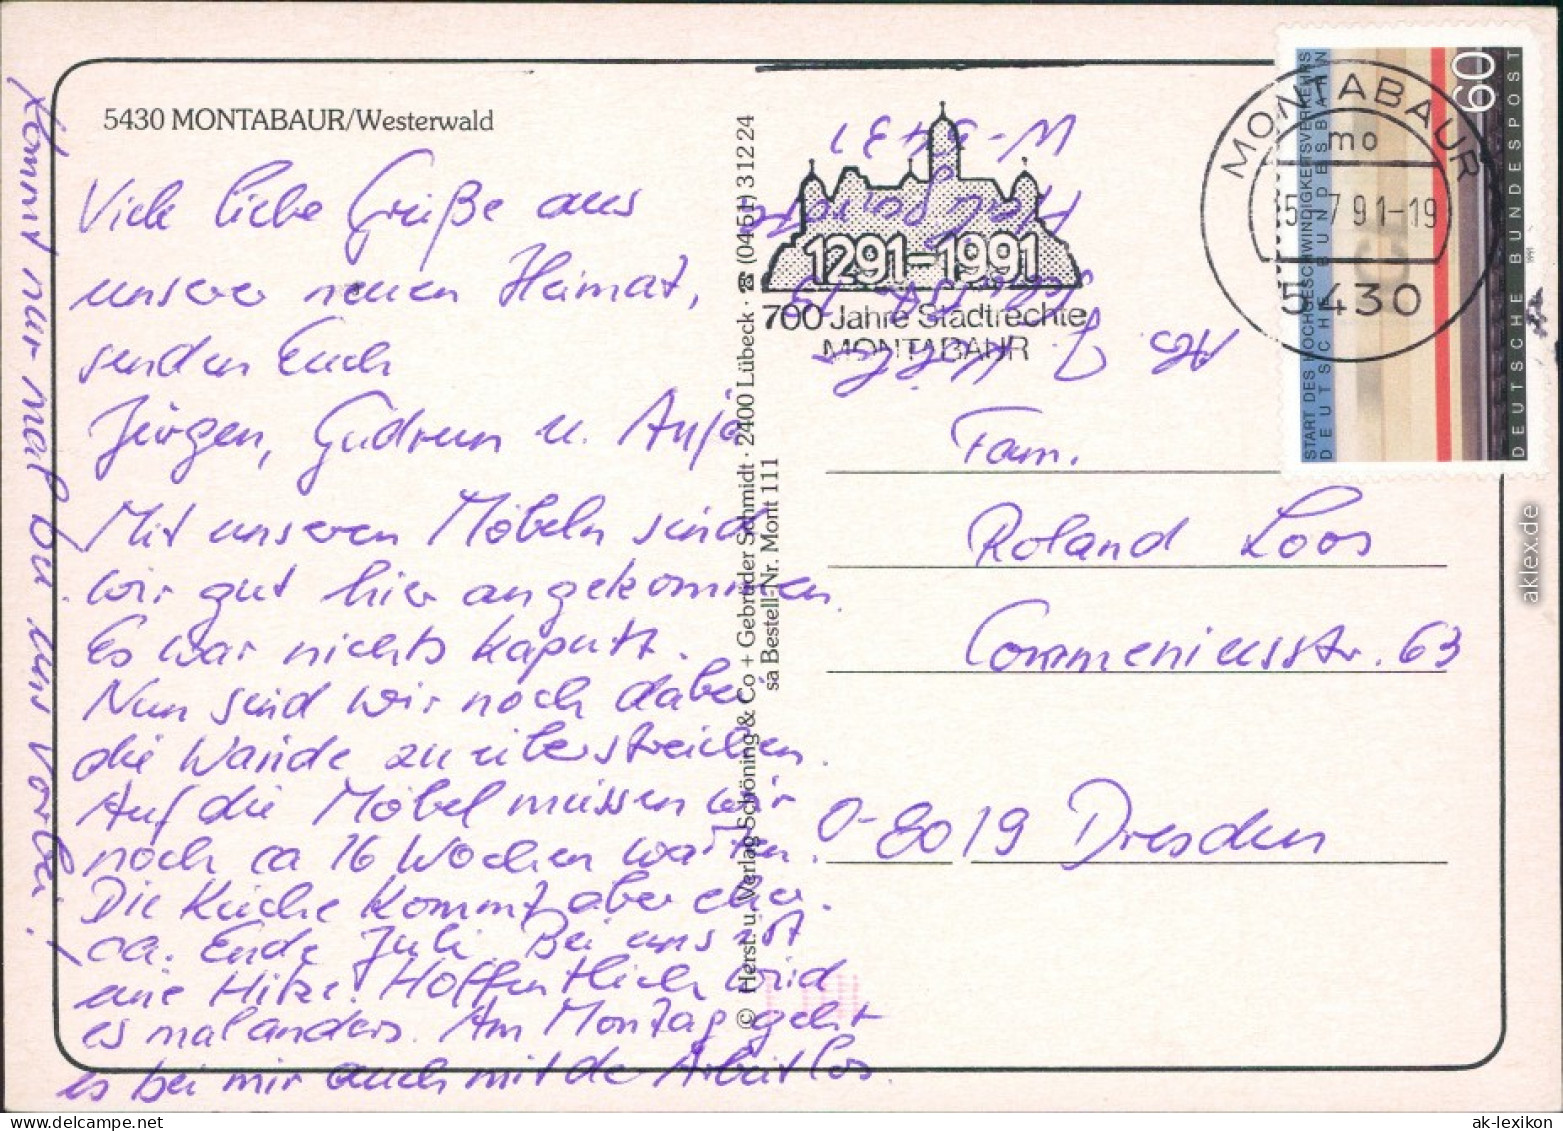 5430 MONTABAUR/Westerwald
Viele liebe Grüße aus
unserer neuen Heimat,
senden Euch
Jürgen, Gudrun u. Anja
Mit unseren Möbeln sind
wir gut hier angekommen.
Es war nichts kaputt.
Nun sind wir noch dabei
die Wände zu überstreichen.
Auf die Möbel müssen wir
noch ca 16 Wochen warten.
Die Küche kommt aber eher.
ca. Ende Juli. Bei uns ist
eine Hitze. Hoffentlich wird
es mal anders. Am Montag geht
es bei mir auch mit der Arbeit los.
Kommt nur mal bei uns vorbei!
© Herst. u. Verlag Schöning & Co + Gebrüder Schmidt · 2400 Lübeck · ☎ (04 51) 3 12 24
sä Bestell-Nr. Mont 111
1291-1991
700 Jahre Stadtrechte
MONTABAUR
Abs. J.
W-5431
MONTABAUR
mo
15.-7.91-19
5430
60
START DES HOCHGESCHWINDIGKEITSVERKEHRS
DEUTSCHE BUNDESBAHN
DEUTSCHE BUNDESPOST
1991
Fam.
Roland Loos
Commeniusstr. 63
O-8019 Dresden
aklex.de
www.delcampe.net
ak-lexikon